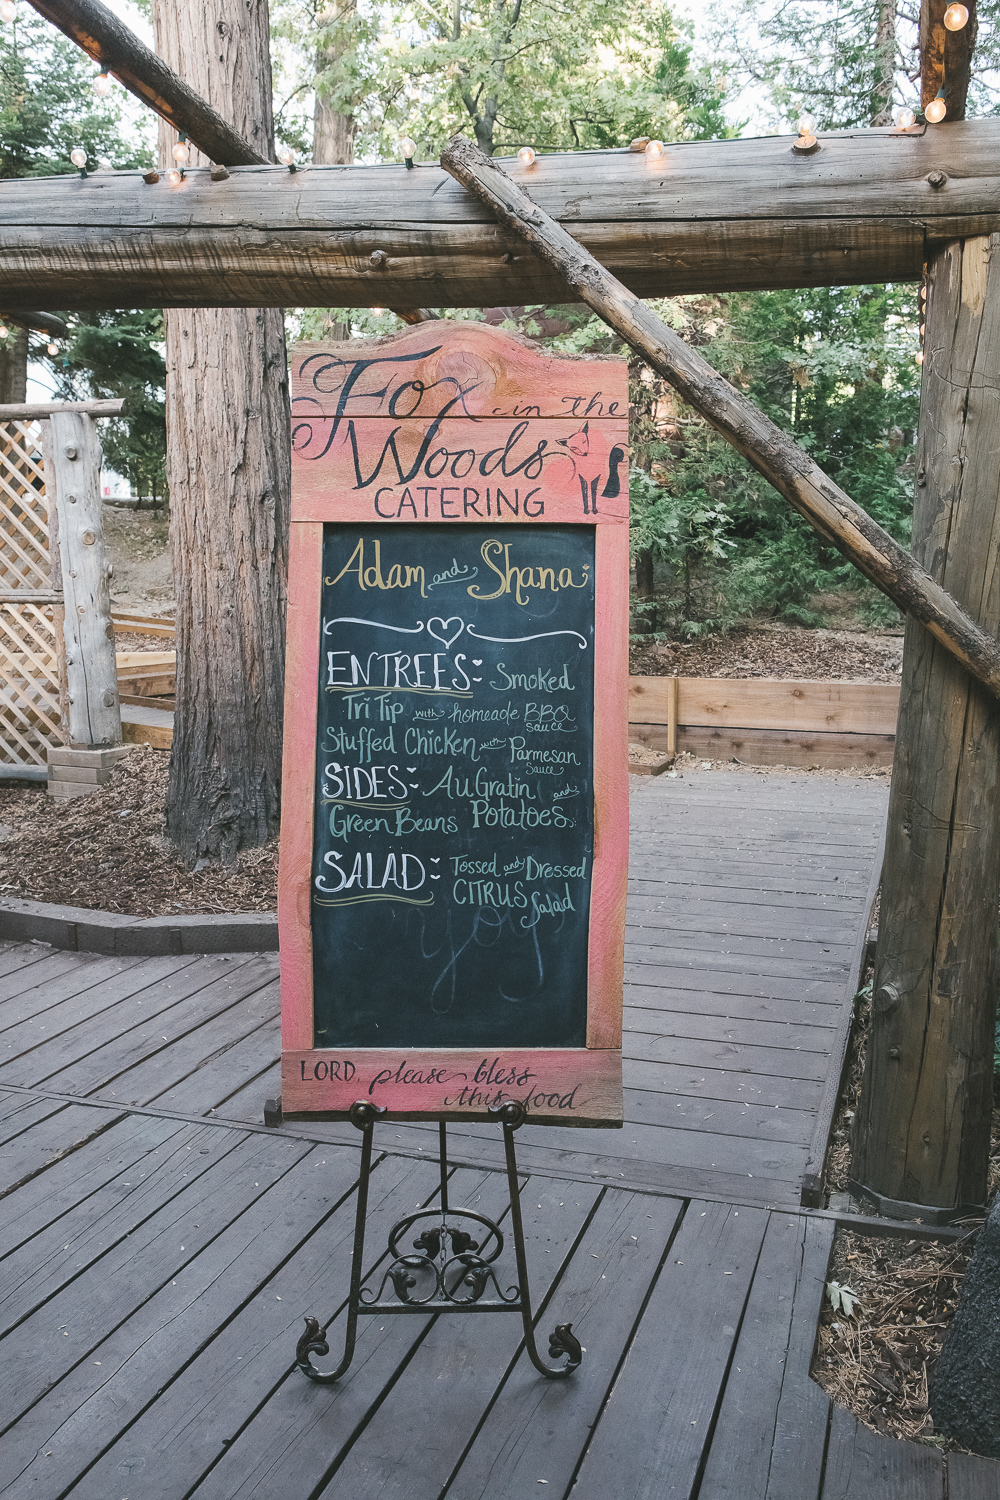 Fox in the
Woods
CATERING
Adam and Shana
ENTREES: Smoked
Tri Tip with homeade BBQ sauce
Stuffed Chicken with Parmesan sauce
SIDES: Au Gratin and
Green Beans Potatoes
SALAD: Tossed and Dressed
CITRUS Salad
LORD, please bless
this food